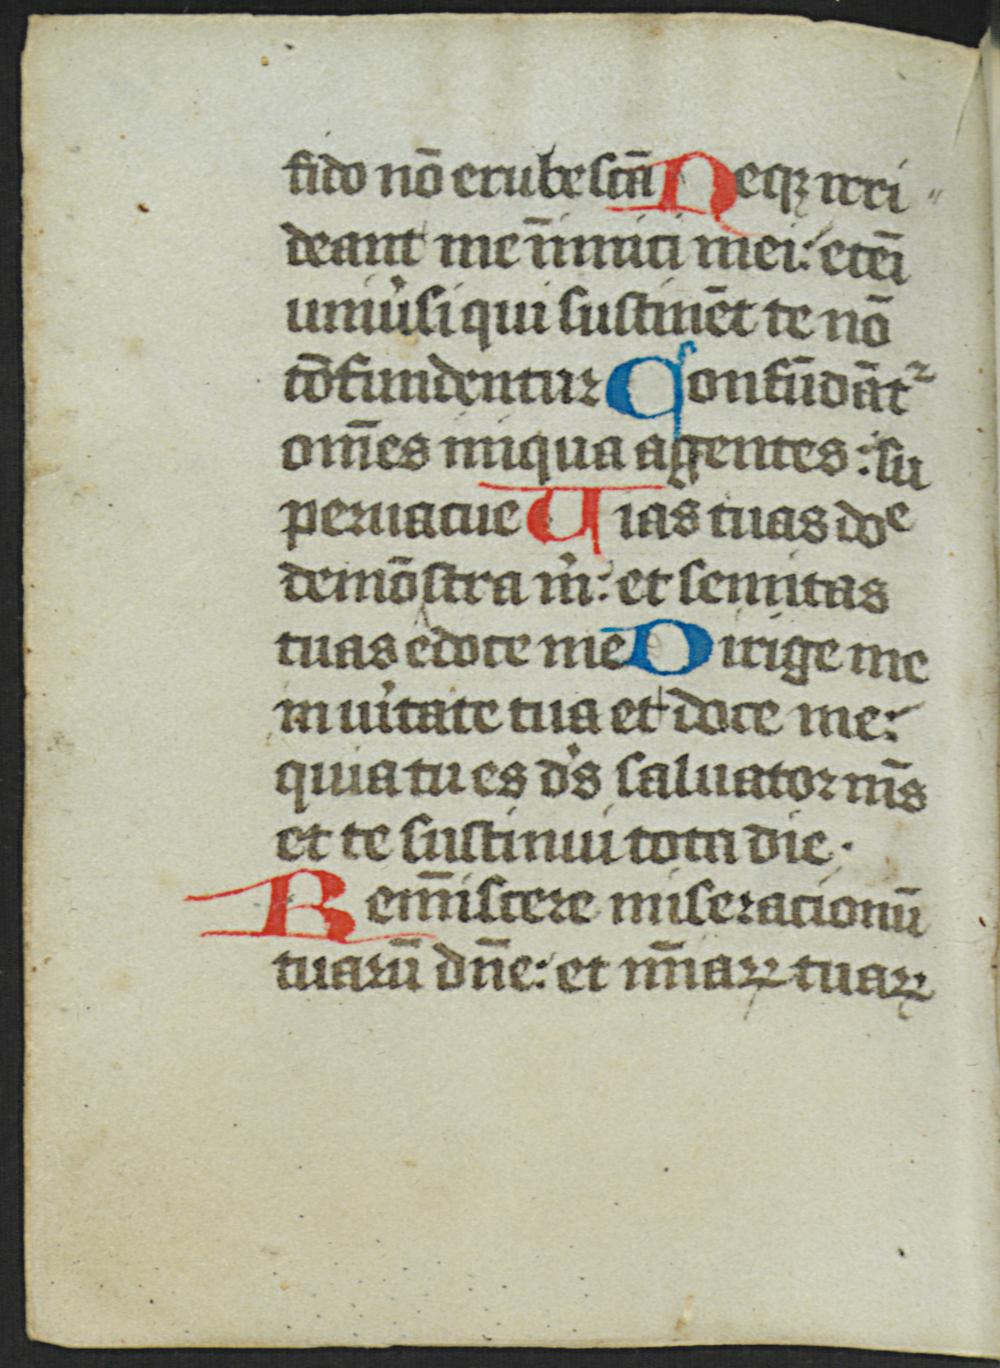 fido nō erubescā Neqꝫ irri
deant me īnimici mei: etēi
uniu̾si qui sustinēt te nō
cōfundentur Confūdāt᷑
om̄es iniqua agentes: su
peruacue Uias tuas doᵉ
demōstra m̄: et semitas
tuas edoce me Dirige me
in uirtate tua et doce me:
quia tu es ds̄ saluator m̄s
et te sustinui tota die.
Rem̄iscere miseracionū
tuarū dn̄e: et m̄iaꝝ tuaꝝ